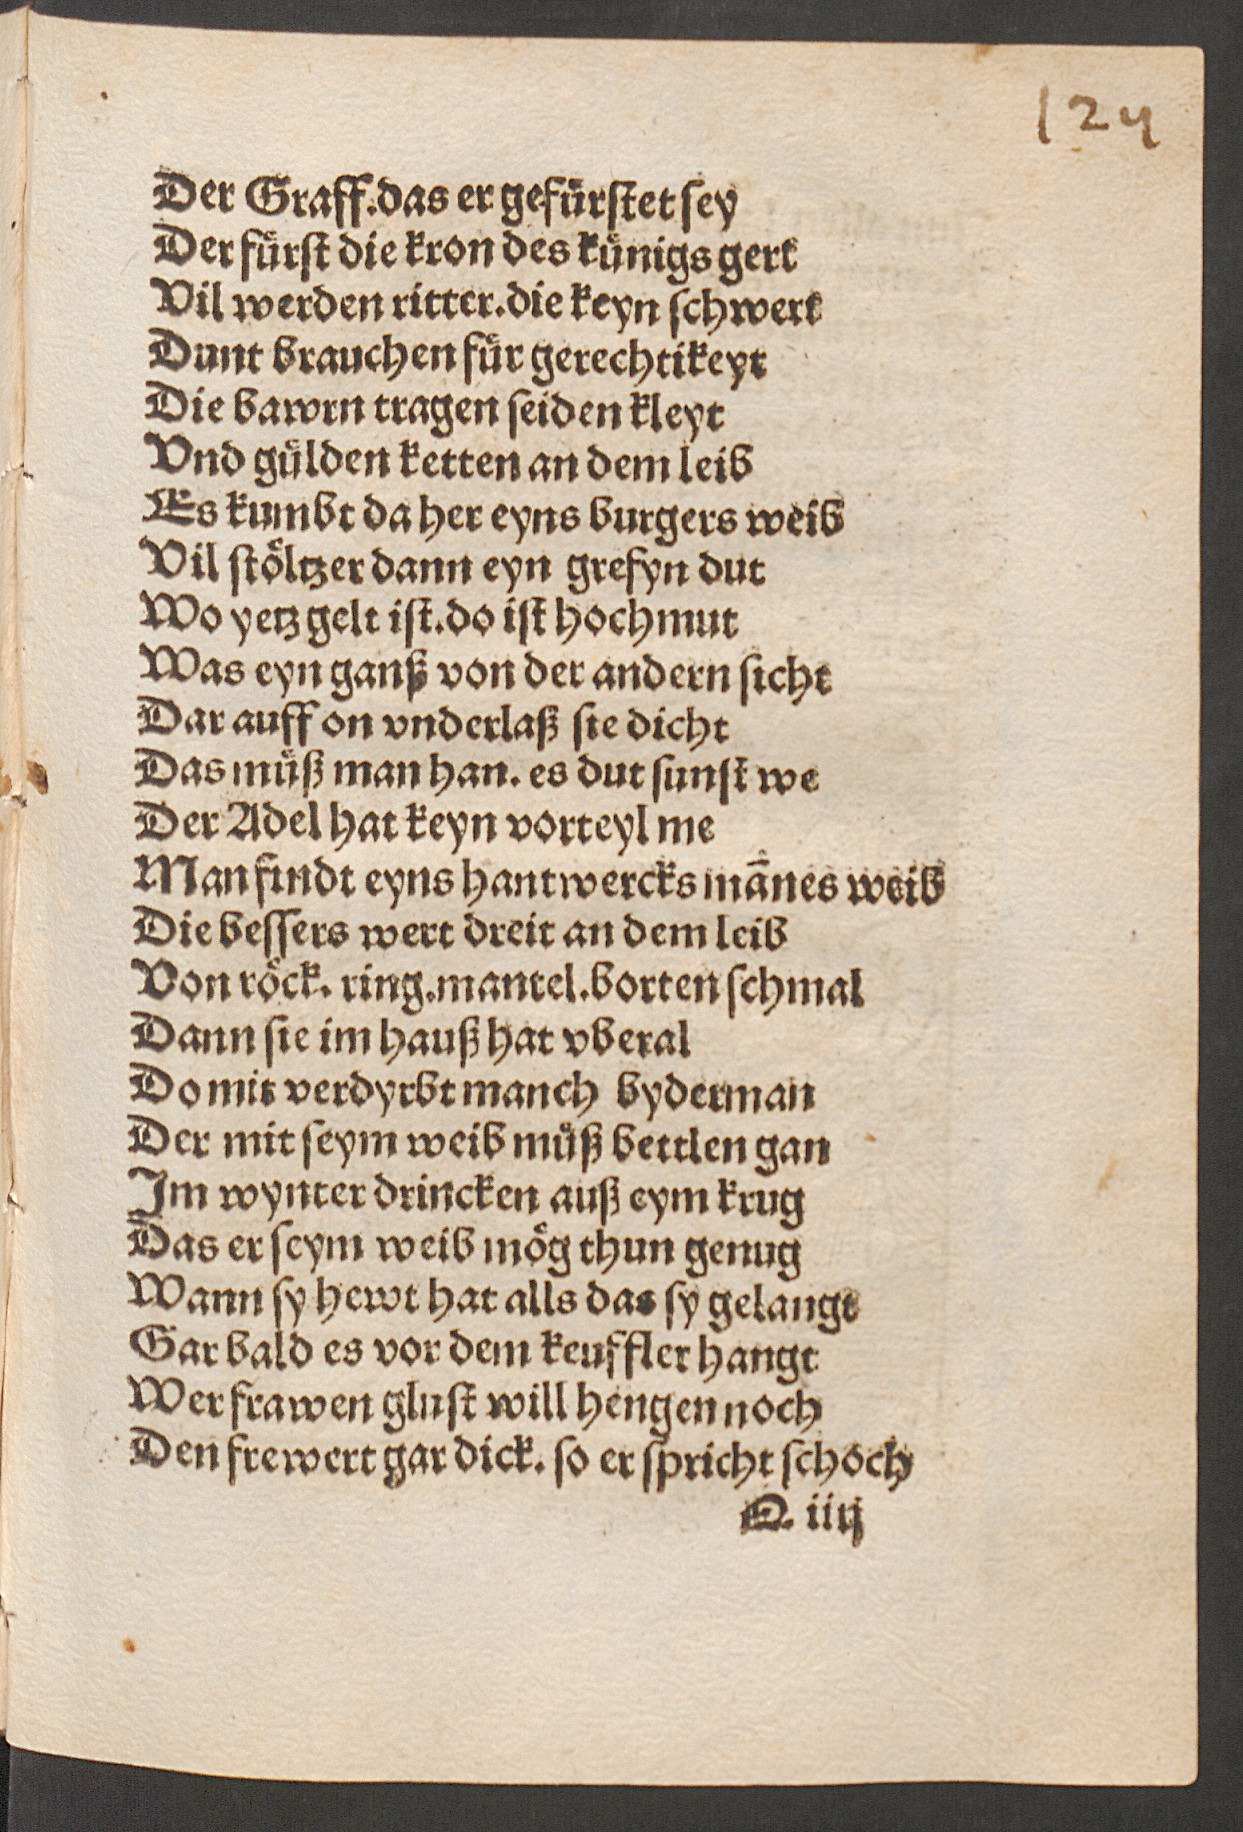 124
Der Graff. das er gefürſtet ſey
Der fürſt die kron des künigs gert
Vil werden ritter. die keyn ſchwert
Dunt brauchen für gerechtikeyt
Die bawrn tragen ſeiden kleyt
Vnd gülden ketten an dem leib
Es kumbt da her eyns burgers weib
Vil ſtöltzer dann eyn grefyn dut
Wo yetz gelt iſt. do iſt hochmut
Was eyn ganß von der andern ſicht
Dar auff on vnderlaß ſie dicht
Das müß man han. es dut ſunſt we
Der Adel hat keyn vorteyl me
Man findt eyns hantwercks mānes weib
Die beſſers wert dreit an dem leib
Von röck. ring. mantel. borten ſchmal
Dann ſie im hauß hat vberal
Do mit verdyrbt manch byderman
Der mit ſeym weib müß bettlen gan
Im wynter drincken auß eym krug
Das er ſeym weib mög thun genug
Wann ſy hewt hat alls das ſy gelangt
Gar bald es vor dem keuffler hangt
Wer frawen gluſt will hengen noch
Den frewert gar dick. ſo er ſpricht ſchoch
Q. iiij